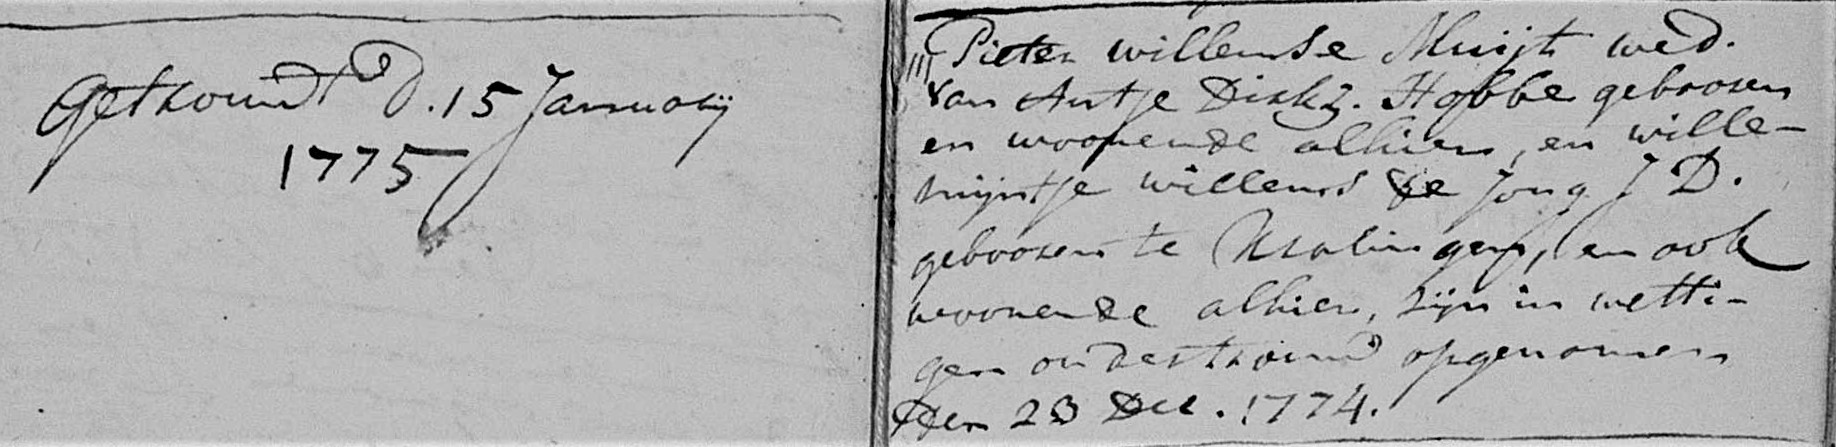 Getrouwd d. 15 Januarij
1775
Pieter willemse Muijt wed.
van Antje Dirkz. Hobbe gebooren
en woonende alhier, en wille-
mijntje willems de Jong J D.
gebooren te, en ook
woonende alhier, zijn in wetti-
gen ondertrouw opgenomen
den 23 Dec. 1774.